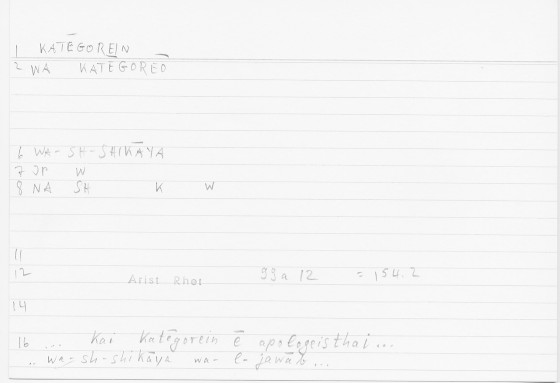 1 KATĒGOREIN
2 WA KATĒGOREŌ
6 WA-SH-SHIKĀYA
7 JP W
8 NA SH K W
11
12 Arist Rhet 99a12 = 154.2
14
16 ... kai katēgorein ē apologeisthai ...
.. wa-sh-shikāya wa-l-jawāb ...